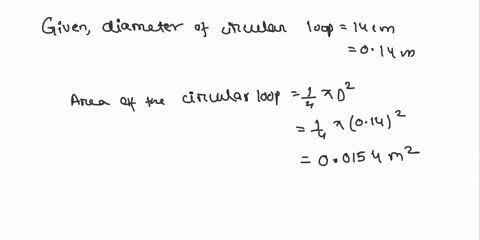 Given, diameter of circular loop = 14cm
= 0.14m
Area of the circular loop = 1/4 π D²
= 1/4 π (0.14)²
= 0.0154 m²